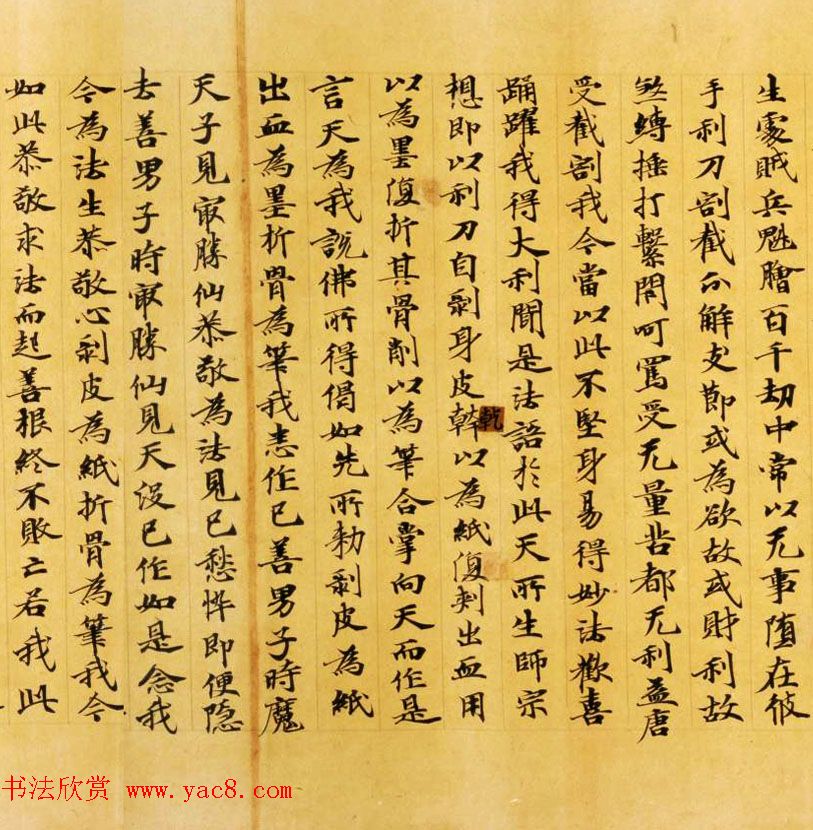 生處賊兵魁膾百千劫中常以无事墮在彼
手利刀割截而解支節或為欲故或財利故
煞縛捶打繫閇呵罵受无量苦都无利益唐
受截割我今當以此不堅身易得妙法歡喜
踊躍我得大利聞是法語於此天所生師宗
想即以利刀自剥身皮乾以為紙復刾出血用
以為墨復折其骨削以為筆合掌向天而作是
言天為我說佛所得偈如先所勑剥皮為紙
出血為墨析骨為筆我悉作已善男子時魔
天子見冣勝仙恭敬為法見已愁悴即便隱
去善男子時冣勝仙見天没已作如是念我
今為法生恭敬心剥皮為紙折骨為筆我今
如此恭敬求法而起善根終不敗亡若我此
乾
书法欣赏 www.yac8.com